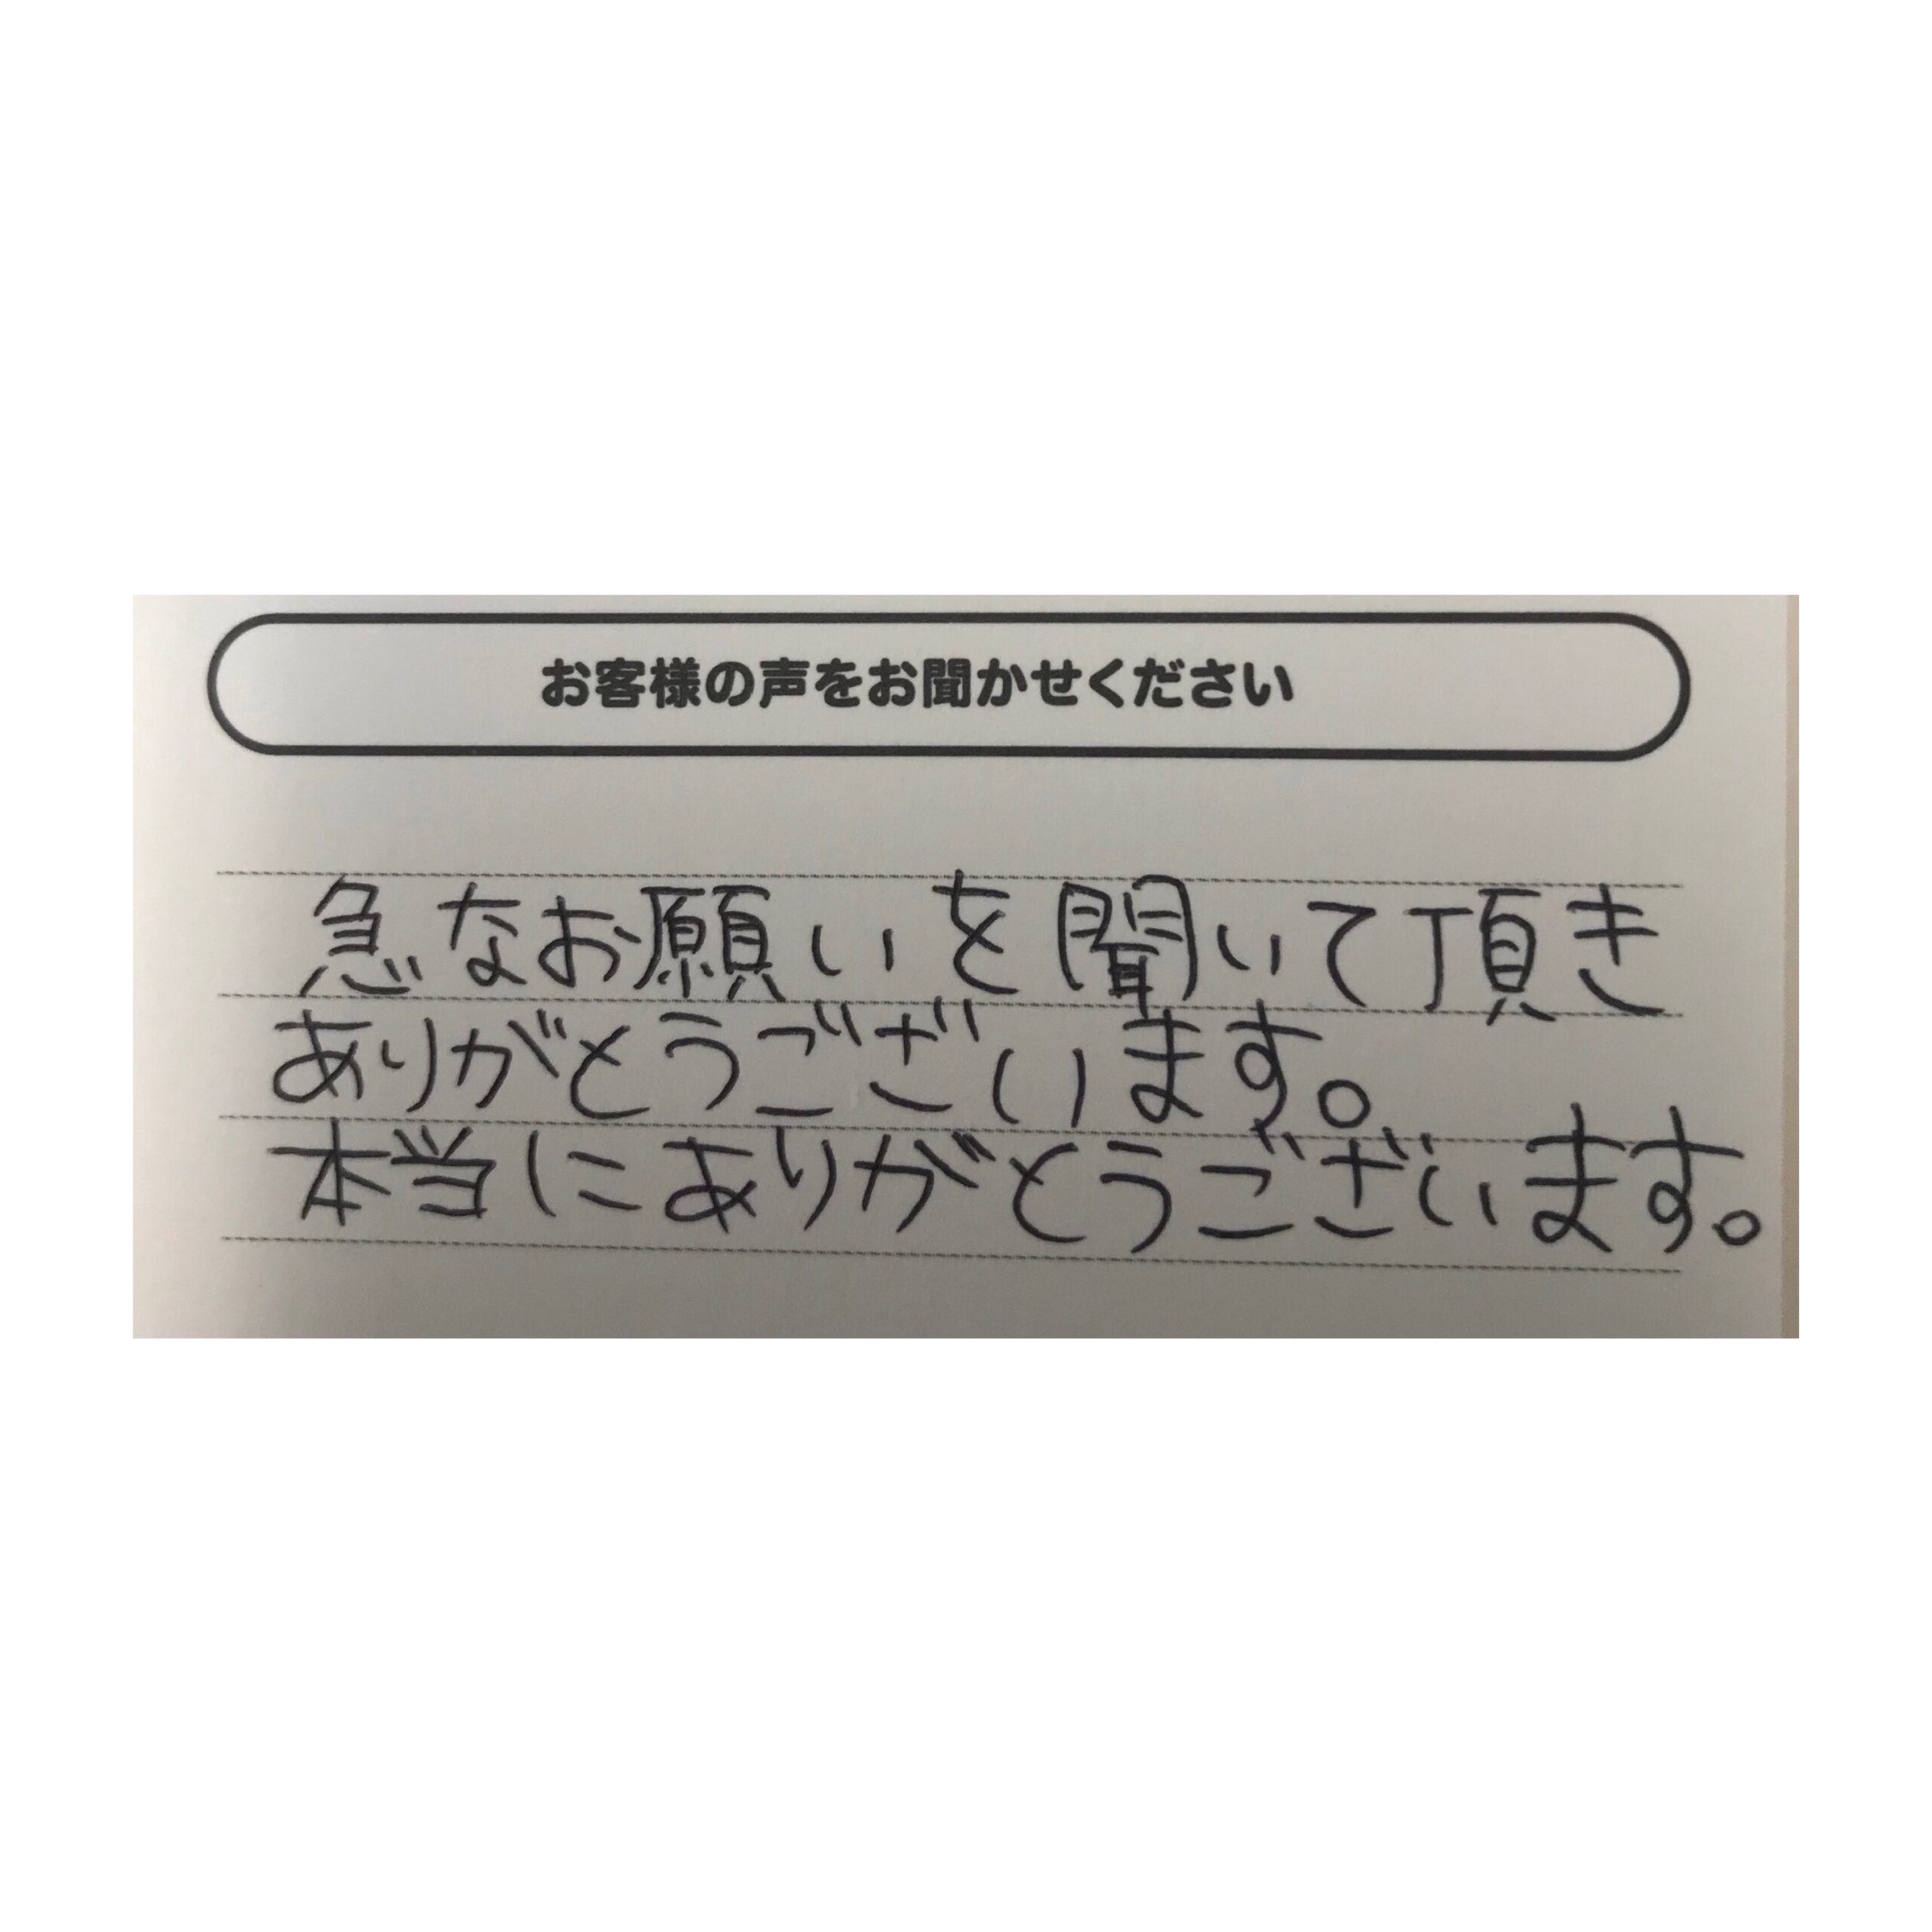 お客様の声をお聞かせください
急なお願いを聞いて頂き
ありがとうございます。
本当にありがとうございます。